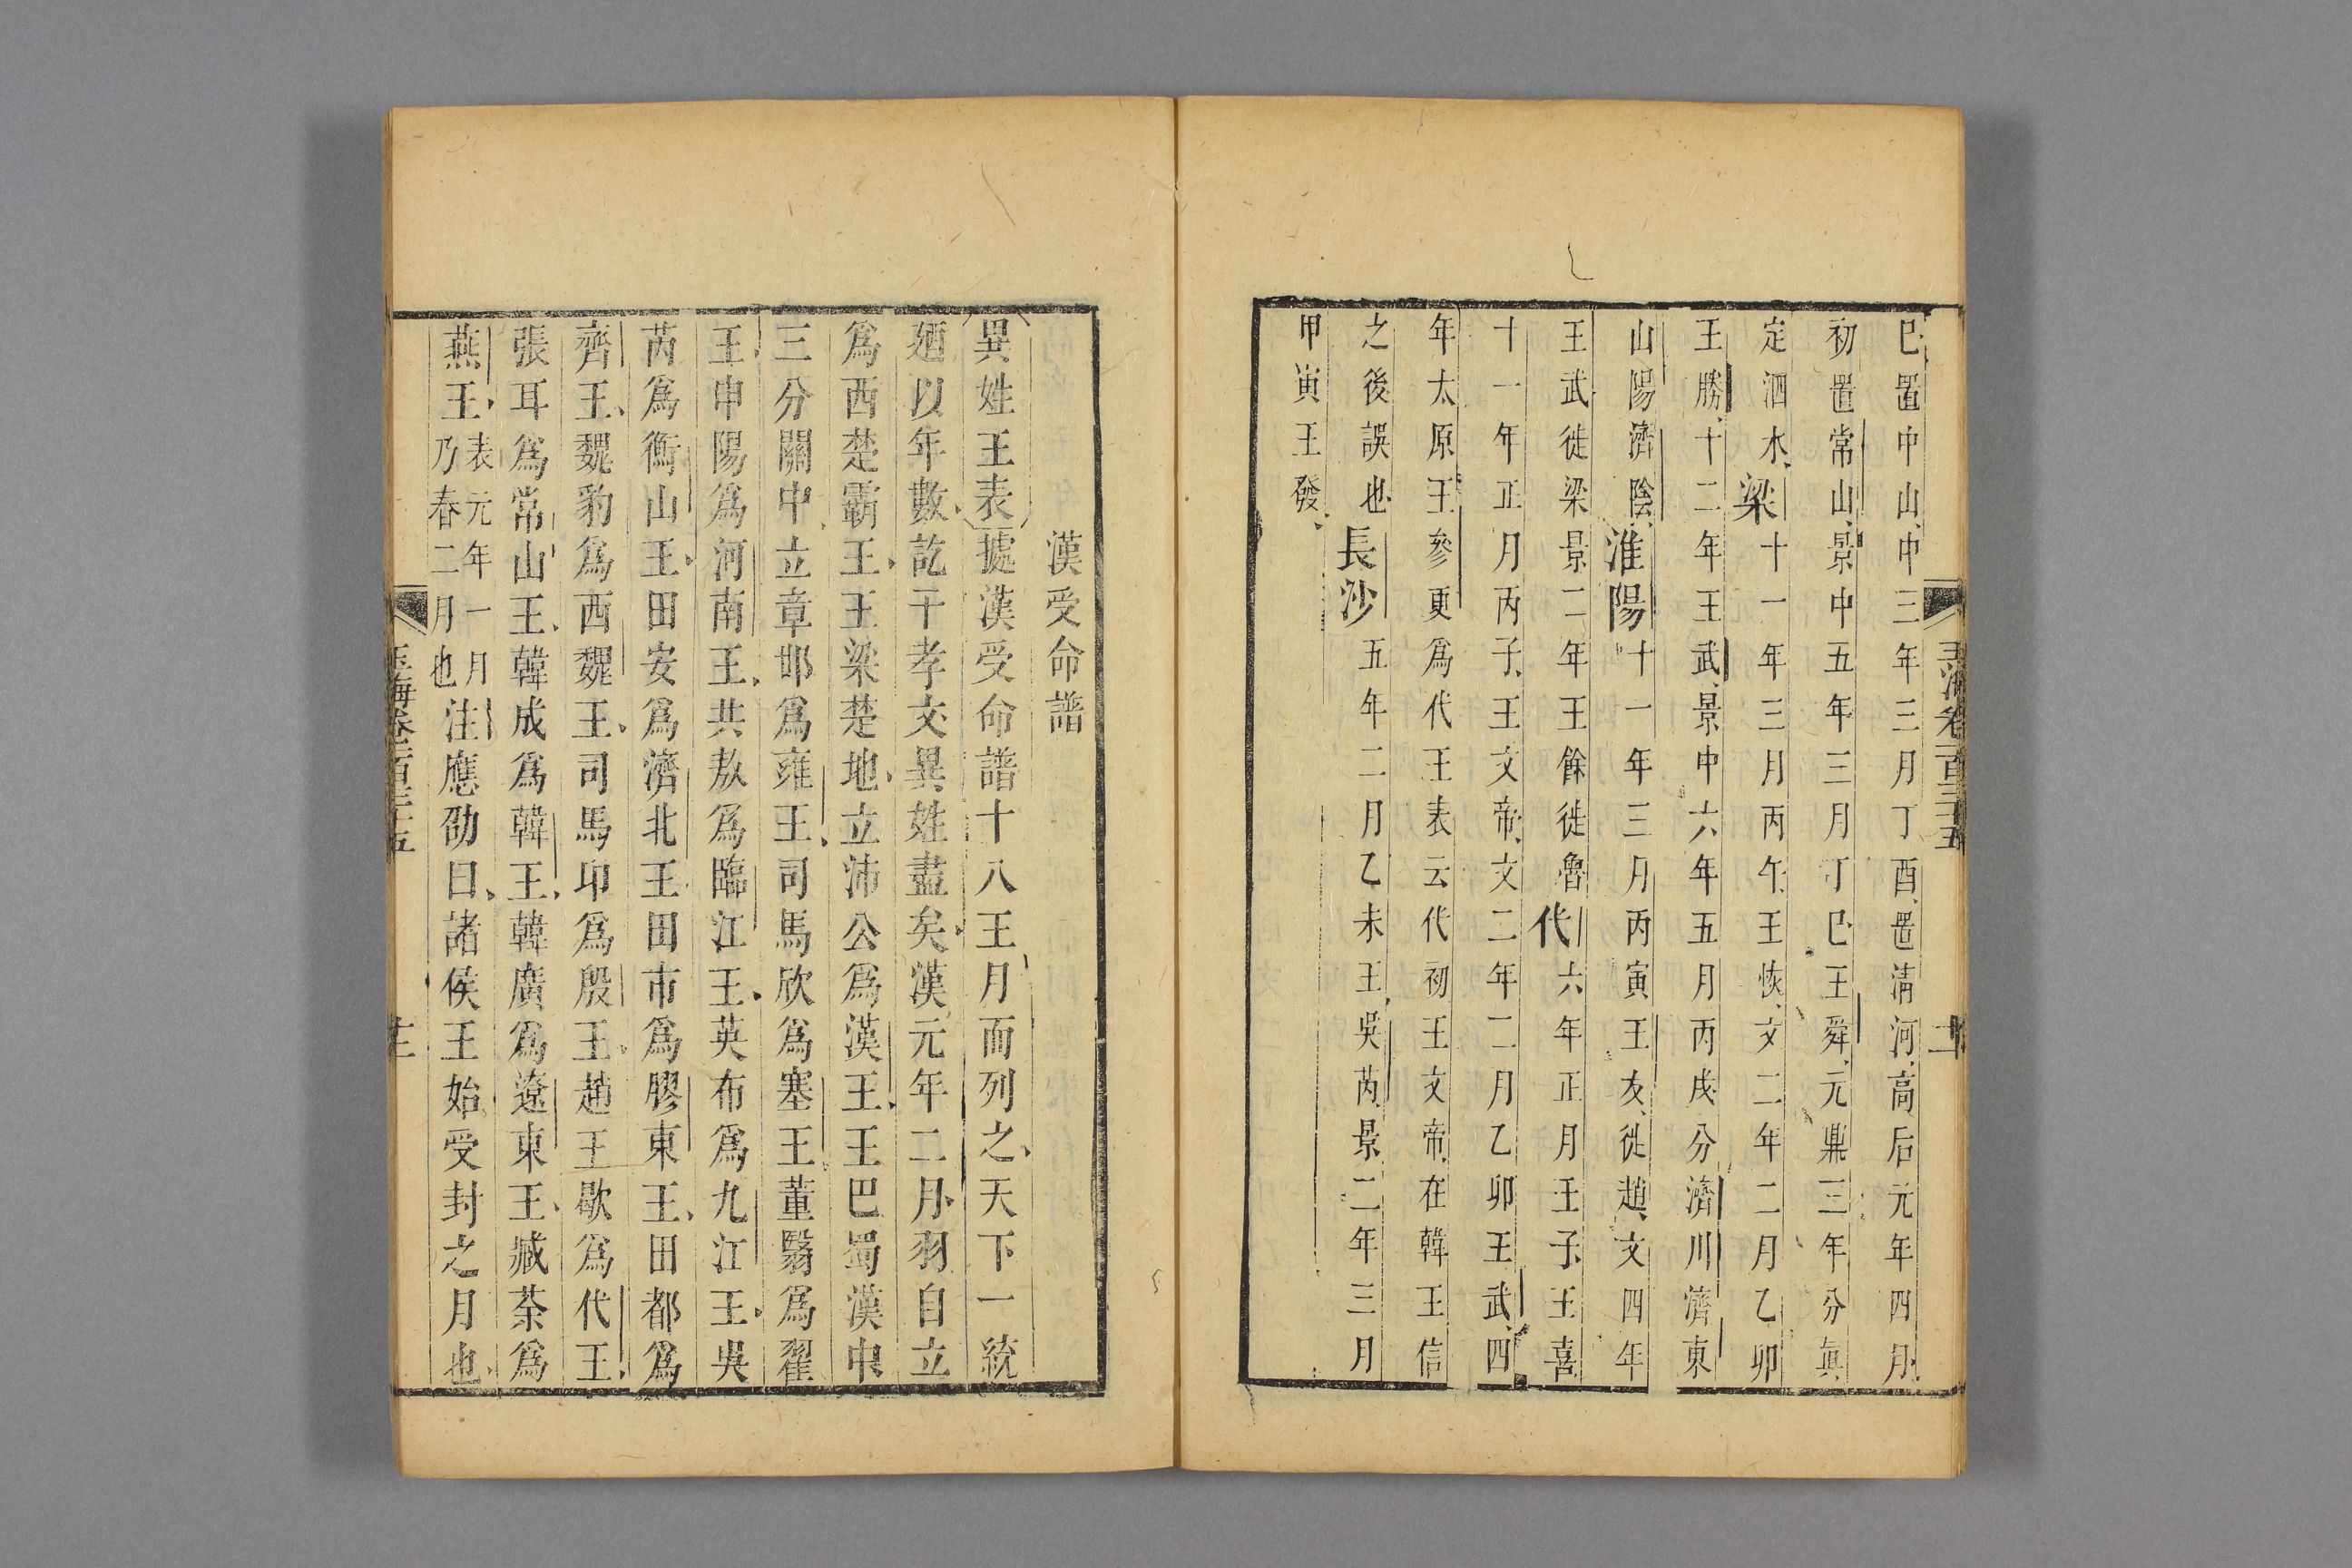 巳置中山中三年三月丁酉置清河高后元年四月
初置常山景中五年三月丁巳王舜元鼎三年分眞
定泗水梁十一年三月丙午王恢文二年二月乙卯
王勝十二年王武景中六年五月丙戌分濟川濟東
山陽濟陰淮陽十一年三月丙寅王友徙趙文四年
王武徙梁景二年王餘徙魯代六年正月壬子王喜
十一年正月丙子王文帝文二年二月乙卯王武四
年太原王參更爲代王表云代初王文帝在韓王信
之後誤也長沙五年二月乙未王吳芮景二年三月
甲寅王發
玉海卷一百三十五
漢受命譜
異姓王表據漢受命譜十八王月而列之天下一統
廼以年數訖于孝文異姓盡矣漢元年二月羽自立
爲西楚霸王王梁楚地立沛公爲漢王王巴蜀漢中
三分關中立章邯爲雍王司馬欣爲塞王董翳爲翟
王申陽爲河南王共敖爲臨江王英布爲九江王吳
芮爲衡山王田安爲濟北王田市爲膠東王田都爲
齊王魏豹爲西魏王司馬卬爲殷王趙王歇爲代王
張耳爲常山王韓成爲韓王韓廣爲遼東王臧荼爲
燕王表元年一月乃春二月也注應劭曰諸侯王始受封之月也
玉海卷一百三十五